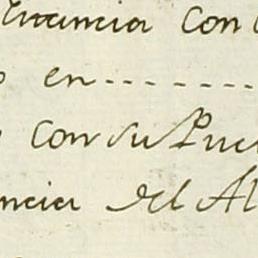 Evancia Con
en--------
Con su Pue
ncia del Al